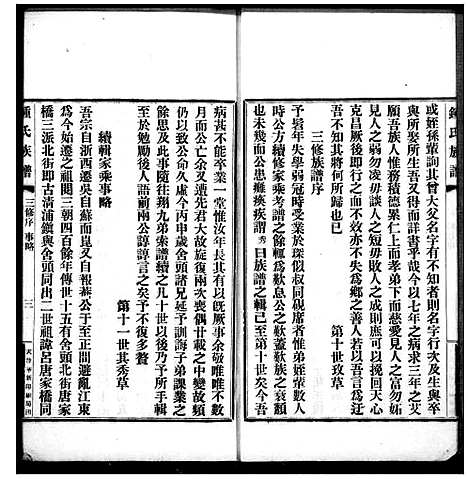 鍾氏族譜
或姪孫輩詢其曾大父名字有不知者則名字行次及生與卒
與所娶所生出焉得而詳書乎哉今以七年之病求三年之艾
願吾族人惟務積德累仁上而孝弟下而慈愛見人之富勿妬
見人之弱勿凌毋談人之短毋敗人之成則庶可以挽回天心
克昌厥後即行之而不效亦不失為鄉之善人若以吾言為迂
吾不知其將何所歸也已
第十世攻草
三修族譜序
予髫年失學弱冠時受業於琛似叔同硯席者惟弟姪輩數人
時公方續修家乘考譜之餘輒為歎息公之歎蓋歎族之衰頹
也未幾而公患癱瘓疾謂秀曰族譜之輯已至第十世矣今吾
病甚不能卒業一堂惟汝年長其有以既厥事余敬唯唯不數
月而公亡余又遭先君大故旋復兩次喪偶廿載之中變故頻
仍以致公命久虛今丙申歲舍頭諸兄延予訓誨子弟課業之
餘慮及此事隨往翔九弟索譜續之凡十世以後乃予所手輯
至於勵後人語前兩公諄諄言之矣予不復多贅
第十一世其秀草
續輯家乘事略
吾宗自浙西遷吳自蘇而崑又自報慕公于至正間避亂江東
為今始遷之祖閱三朝四百餘年傳世十五有舍頭北街唐家
橋三派北街即古清浦鎮與舍頭同出二世祖諱呂唐家橋同
鍾氏族譜
三修序 事略
三